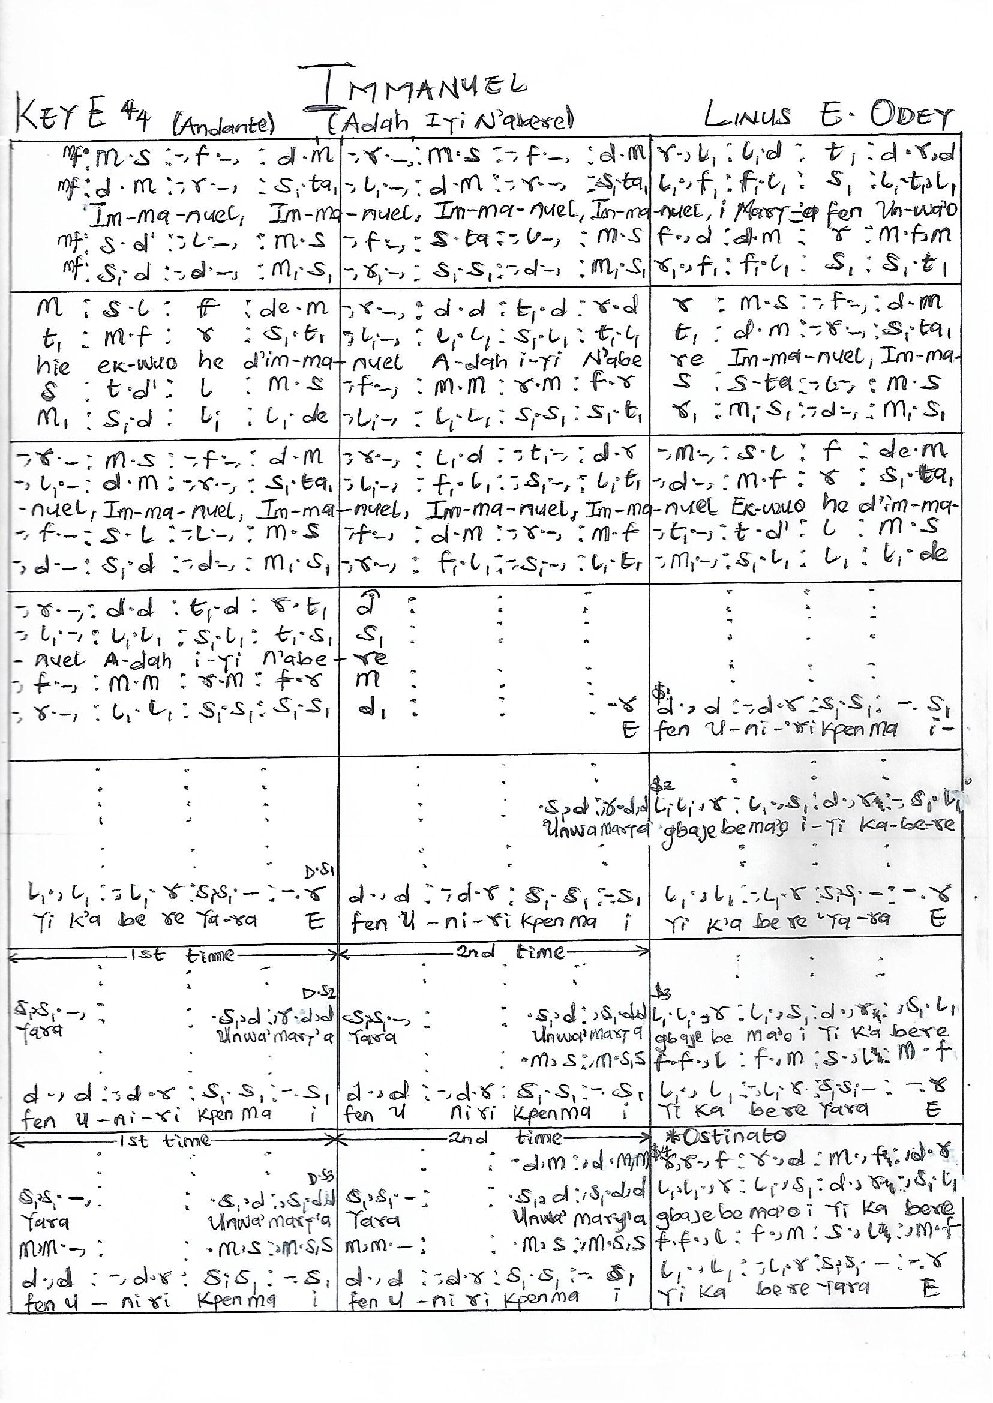 IMMANUEL
KEY E 4/4 (Andante) (Adah Iyi N'abere) LINUS E. ODEY
mf: m.s :-.f.-, : d.m -.r.-, : m.s :-.f.-, : d.m r.,l₁ : l₁.d : t₁ : d.r,d
mf: d.m :-.r.-, : s₁.ta₁ -.l₁.-, : d.m :-.r.-, : s₁.ta₁ l₁.,f₁ : f₁.l₁ : s₁ : l₁.t₁,l₁
Im-ma-nuel, Im-ma-nuel, Im-ma-nuel, Im-ma-nuel, i Mary-a fen Un-wa'o
mf: s.d' :-.l.-, : m.s -.f.-, : s.ta :-.l.-, : m.s f.,d : d.m : r : m.f,m
mf: s₁.d :-.d.-, : m₁.s₁ -.r₁.-, : s₁.s₁ :-.d.-, : m₁.s₁ r₁.,f₁ : f₁.l₁ : s₁ : s₁.t₁
m : s.l : f : de.m -.r.-, : d.d : t₁.d : r.d r : m.s :-.f.-, : d.m
t₁ : m.f : r : s₁.t₁ -.l₁.-, : l₁.l₁ : s₁.l₁ : t₁.l₁ t₁ : d.m :-.r.-, : s₁.ta₁
hie ek-wuo he d'im-ma-nuel A-dah i-yi N'abe re Im-ma-nuel, Im-ma-
s : t.d' : l : m.s -.f.-, : m.m : r.m : f.r s : s.ta :-.l.-, : m.s
m₁ : s₁.d : l₁ : l₁.de -.l₁.-, : l₁.l₁ : s₁.s₁ : s₁.t₁ r₁ : m₁.s₁ :-.d.-, : m₁.s₁
-.r.-, : m.s :-.f.-, : d.m -.r.-, : l₁.d :-.t₁.-, : d.r -.m.-, : s.l : f : de.m
-.l₁.-, : d.m :-.r.-, : s₁.ta₁ -.l₁.-, : f₁.l₁ :-.s₁.-, : l₁.t₁ -.d.-, : m.f : r : s₁.ta₁
-nuel, Im-ma-nuel, Im-ma-nuel, Im-ma-nuel, Im-ma-nuel Ek-wuo he d'im-ma-
-.f.-, : s.l :-.l.-, : m.s -.f.-, : d.m :-.r.-, : m.f -.t₁.-, : t.d' : l : m.s
-.d.-, : s₁.d :-.d.-, : m₁.s₁ -.r.-, : f₁.l₁ :-.s₁.-, : l₁.t₁ -.m₁.-, : s₁.l₁ : l₁ : l₁.de
-.r.-, : d.d : t₁.d : r.t₁ d : : :
-.l₁.-, : l₁.l₁ : s₁.l₁ : t₁.s₁ s₁ : : :
-nuel A-dah i-yi N'abe-re
-.f.-, : m.m : r.m : f.r m : : :
-.r.-, : l₁.l₁ : s₁.s₁ : s₁.s₁ d₁ : : : -.r $1 d.,d :-.d.r : s₁.s₁ : -.s₁
E fen U-ni-'ri kpen ma i-
.s₁,d :.r.d,d $2 l₁.l₁.,r : l₁.,s₁ : d.,r : .,s₁.l₁
Unwa mary'a gbaje be ma'o i-Yi Ka-be-re
D.S1
l₁.,l₁ :-.l₁.r : s₁s₁.- : -.r d.,d :-.d.r : s₁.s₁ :-.s₁ l₁.,l₁ :-.l₁.r : s₁s₁.- : -.r
Yi K'a be re Ya-ra E fen U-ni-ri kpen ma i Yi K'a be re Ya-ra E
1st time 2nd time
D.S2 $3
s₁.s₁.-, : : .s₁,d :.r.d,d s₁.s₁.-, : : .s₁,d :.s₁,d,d l₁.l₁.,r : l₁.,s₁ : d.,r : .,s₁.l₁
Yara Unwa'mary'a Yara Unwa'mary'a gbaje be ma'o i Yi K'a bere
.m,s :.m.s,s f.f.,l : f.,m : s.,l : m.f
d.,d :-.d.r : s₁.s₁ :-.s₁ d.,d :-.d.r : s₁.s₁ :-.s₁ l₁.,l₁ :-.l₁.r : s₁s₁.- : -.r
fen U-ni-ri kpen ma i fen U ni ri kpen ma i Yi Ka be re Yara E
1st time 2nd time *Ostinato
.d,m :.d.m,m $4 r.r.,f : r.,d : m.,f : .,d.r
D.S3
s₁.s₁.-, : : .s₁,d :.s₁,d,d s₁.s₁.-, : : .s₁,d :.s₁,d,d l₁.l₁.,r : l₁.,s₁ : d.,r : .,s₁.l₁
Yara Unwa'mary'a Yara Unwa mary'a gbaje be ma'o i Yi Ka bere
m.m.-, : : .m,s :.m.s,s m.m.-, : : .m,s :.m.s,s f.f.,l : f.,m : s.,l : .,m.f
d.,d :-.d.r : s₁.s₁ :-.s₁ d.,d :-.d.r : s₁.s₁ :-.s₁ l₁.,l₁ :-.l₁.r : s₁s₁.- : -.r
fen U-ni ri kpen ma i fen U-ni ri kpen ma i Yi Ka be re Yara E